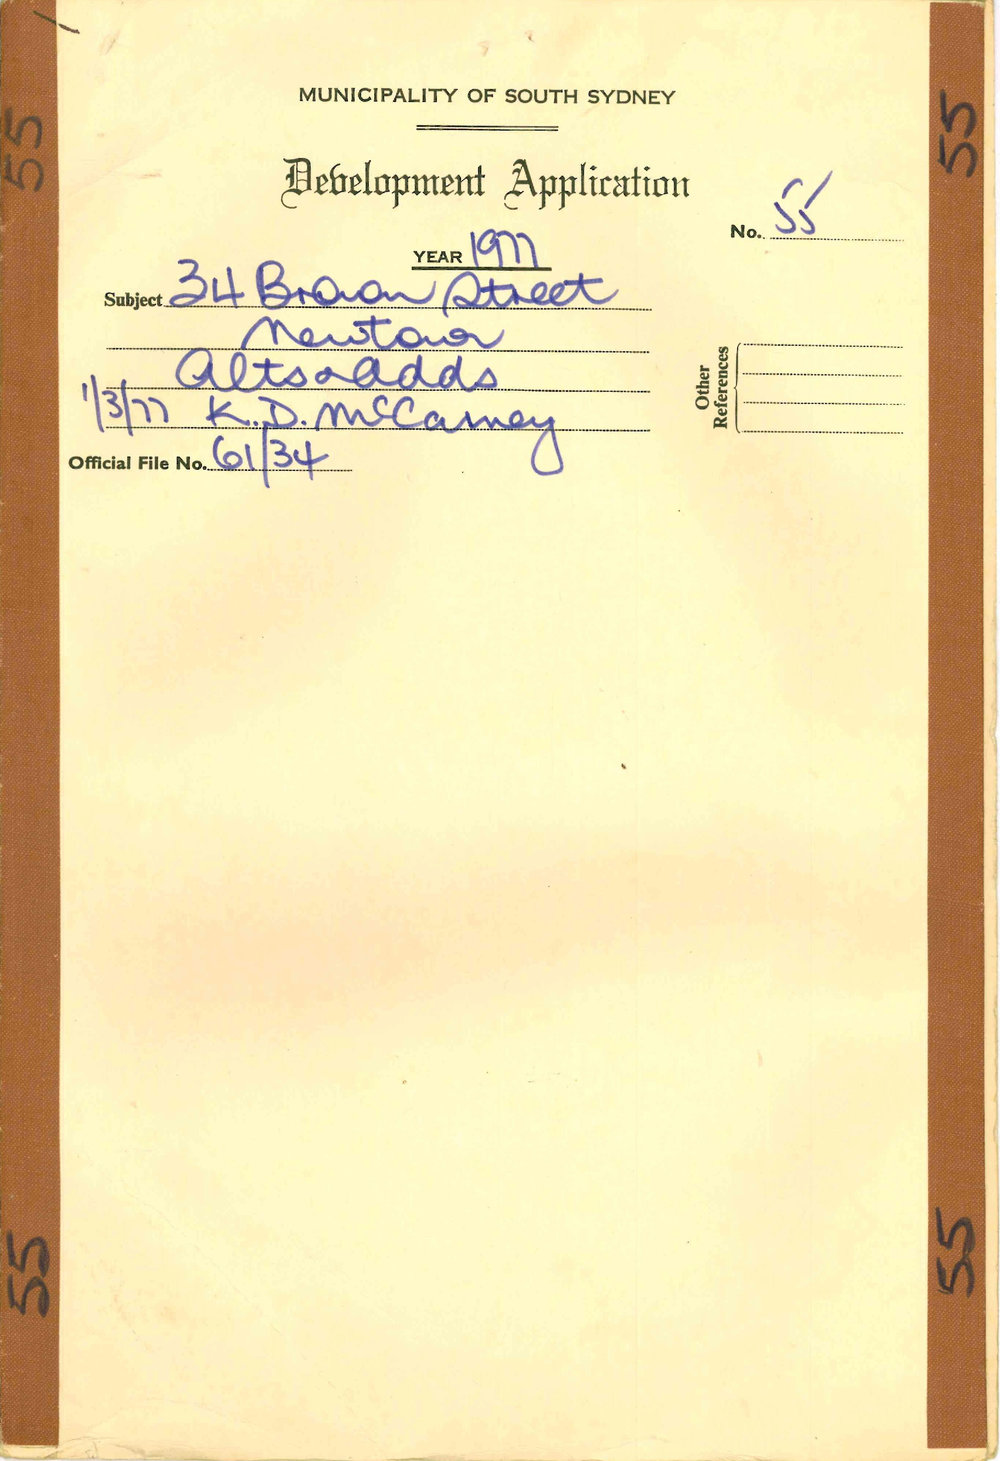 MUNICIPALITY OF SOUTH SYDNEY
Development Application
No. 55
YEAR 1977
Subject 34 Brown Street
Newtown
Alts & Adds
1/3/77 K.D. McCamey
Official File No. 61/34
Other References
55
55
55
55